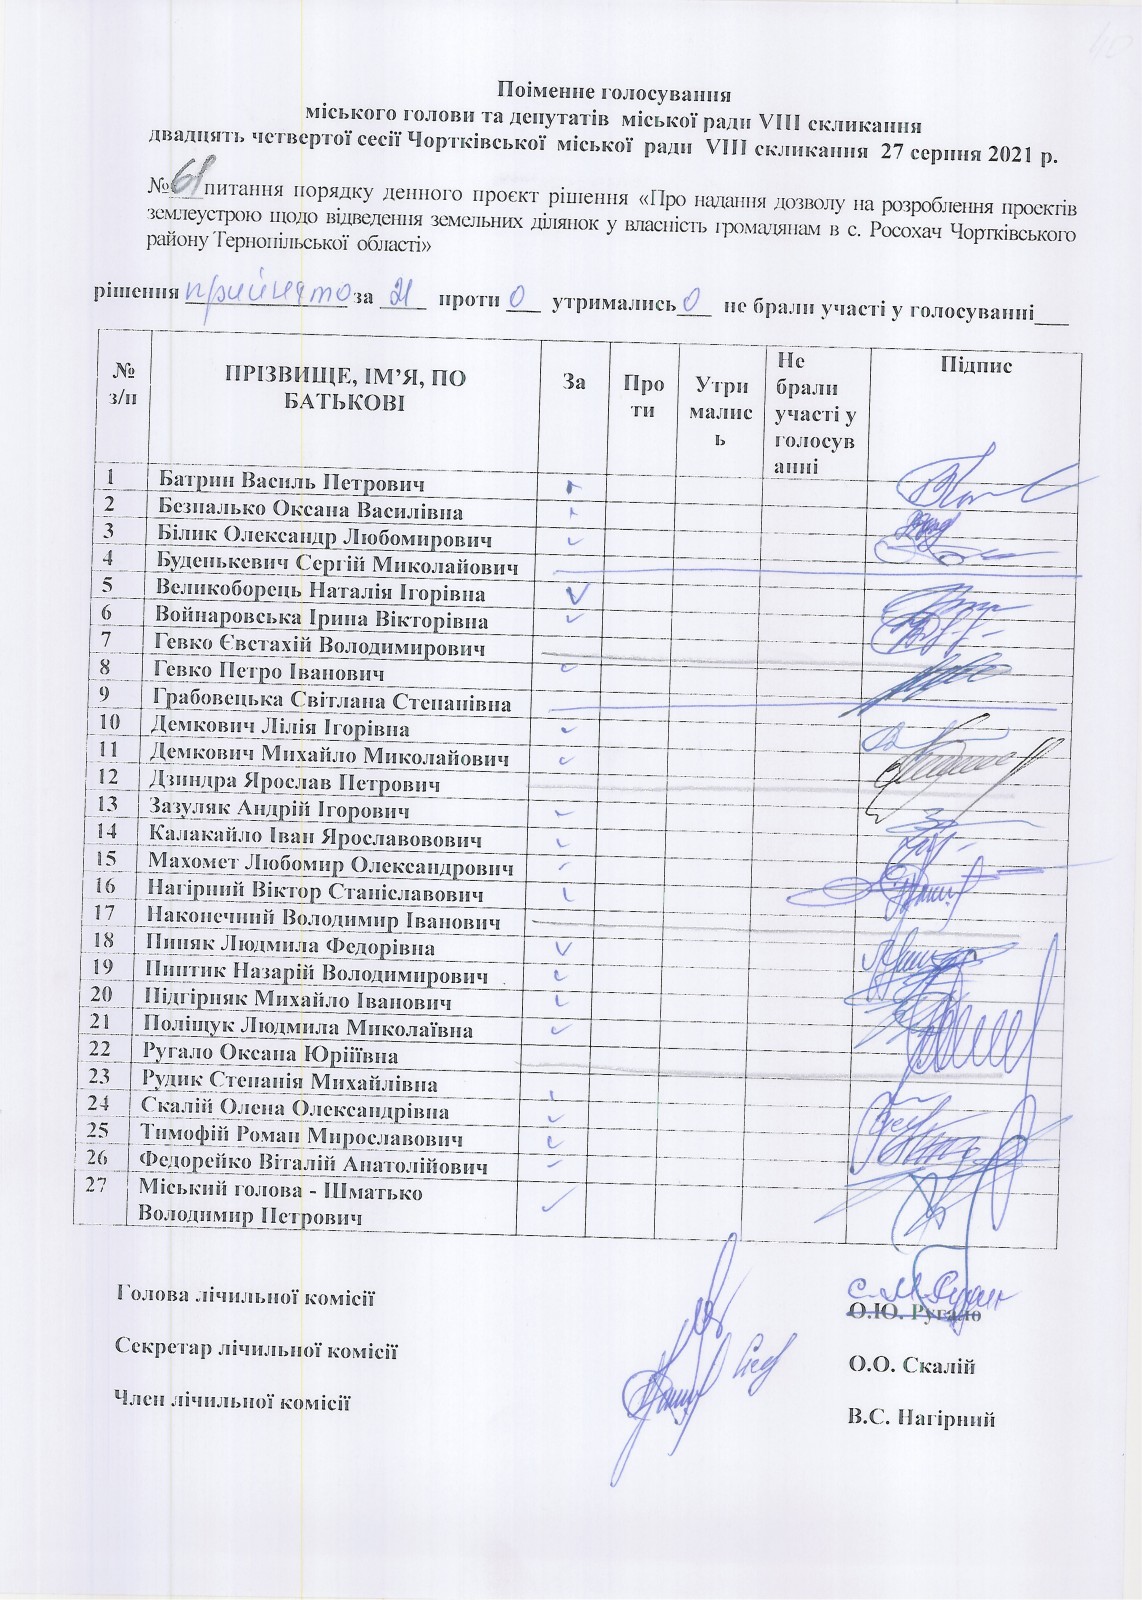 Поіменне голосування
міського голови та депутатів міської ради VIII скликання
двадцять четвертої сесії Чортківської міської ради VIII скликання 27 серпня 2021 р.
№ 61 питання порядку денного проєкт рішення «Про надання дозволу на розроблення проектів
землеустрою щодо відведення земельних ділянок у власність громадянам в с. Росохач Чортківського
району Тернопільської області»
рішення прийнято за 21 проти 0 утримались 0 не брали участі у голосуванні___
№ з/п ПРІЗВИЩЕ, ІМ’Я, ПО БАТЬКОВІ За Про ти Утри малис ь Не брали участі у голосув анні Підпис
1 Батрин Василь Петрович
2 Безпалько Оксана Василівна
3 Білик Олександр Любомирович
4 Буденькевич Сергій Миколайович
5 Великоборець Наталія Ігорівна
6 Войнаровська Ірина Вікторівна
7 Гевко Євстахій Володимирович
8 Гевко Петро Іванович
9 Грабовецька Світлана Степанівна
10 Демкович Лілія Ігорівна
11 Демкович Михайло Миколайович
12 Дзиндра Ярослав Петрович
13 Зазуляк Андрій Ігорович
14 Калакайло Іван Ярославовович
15 Махомет Любомир Олександрович
16 Нагірний Віктор Станіславович
17 Наконечний Володимир Іванович
18 Пиняк Людмила Федорівна
19 Пинтик Назарій Володимирович
20 Підгірняк Михайло Іванович
21 Поліщук Людмила Миколаївна
22 Ругало Оксана Юріїївна
23 Рудик Степанія Михайлівна
24 Скалій Олена Олександрівна
25 Тимофій Роман Мирославович
26 Федорейко Віталій Анатолійович
27 Міський голова - Шматько
Володимир Петрович
Голова лічильної комісії С.М.Рудик
О.Ю. Ругало
Секретар лічильної комісії О.О. Скалій
Член лічильної комісії В.С. Нагірний